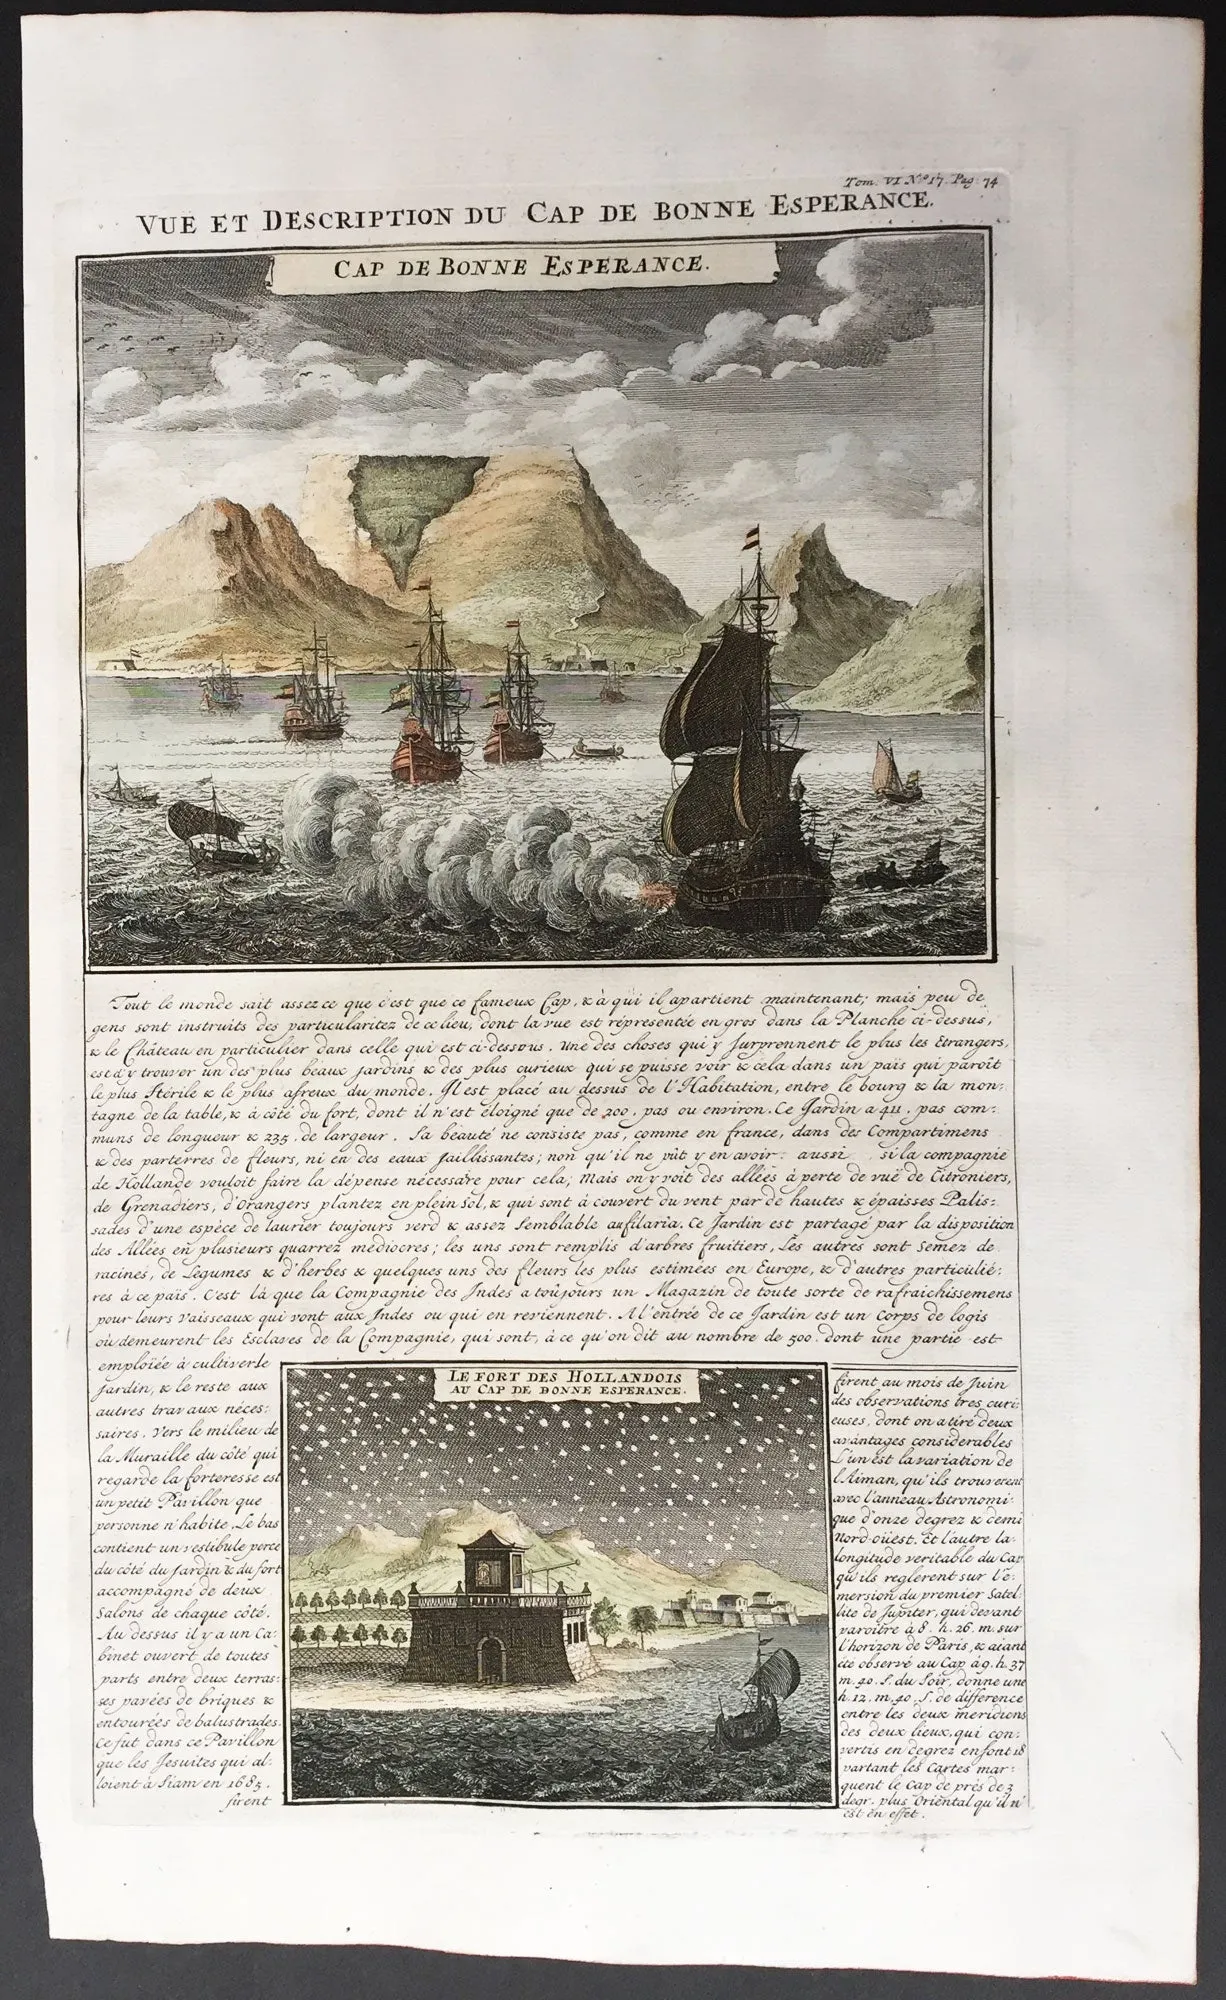 Tom. VI N.º 17. Pag. 74
VUE ET DESCRIPTION DU CAP DE BONNE ESPERANCE.
CAP DE BONNE ESPERANCE.
Tout le monde sait assez ce que c'est que ce fameux Cap, & à qui il apartient maintenant; mais peu de
gens sont instruits des particularitez de ce lieu, dont la vue est réprésentée en gros dans la Planche ci-dessus,
& le Château en particulier dans celle qui est ci-dessous. Une des choses qui y surprennent le plus les Etrangers,
est d'y trouver un des plus beaux jardins & des plus curieux qui se puisse voir & cela dans un païs qui paroît
le plus stérile & le plus afreux du monde. Il est placé au dessus de l'Habitation, entre le bourg & la mon-
tagne de la table, & à côté du fort, dont il n'est éloigné que de 200. pas ou environ. Ce Jardin a 411. pas com-
muns de longueur & 235. de largeur. Sa beauté ne consiste pas, comme en france, dans des Compartimens
& des parterres de fleurs, ni en des eaux jaillissantes; non qu'il ne pût y en avoir aussi si la compagnie
de Hollande vouloit faire la dépense nécessaire pour cela; Mais on y voit des allées à perte de vuë de Citroniers,
de Grenadiers, d'Orangers plantez en plein sol, & qui sont à couvert du vent par de hautes & épaisses Palis-
sades d'une espèce de laurier toujours verd & assez semblable au filaria. Ce Jardin est partagé par la disposition
des Allées en plusieurs quarrez médiocres; les uns sont remplis d'arbres fruitiers, Les autres sont semez de
racines, de Legumes & d'herbes & quelques uns des fleurs les plus estimées en Europe, & d'autres particulié-
res à ce païs. C'est là que la Compagnie des Indes a toûjours un Magazin de toute sorte de rafraichissemens
pour leurs vaisseaux qui vont aux Indes ou qui en reviennent. A l'entrée de ce Jardin est un Corps de logis
où demeurent les Esclaves de la Compagnie, qui sont, à ce qu'on dit au nombre de 500. dont une partie est
emploiée à cultiver le
jardin, & le reste aux
autres travaux néces-
saires. Vers le milieu de
la Muraille du côté qui
regarde la forteresse est
un petit Pavillon que
personne n'habite. Le bas
contient un vestibule percé
du côté du jardin & du fort
accompagné de deux
Salons de chaque côté.
Au dessus il y a un Ca-
binet ouvert de toutes
parts entre deux terras-
ses pavées de briques &
entourées de balustrades.
Ce fut dans ce Pavillon
que les Jesuites qui al-
loient à Siam en 1685.
firent
LE FORT DES HOLLANDOIS
AU CAP DE BONNE ESPERANCE.
firent au mois de Juin
des observations tres curi-
euses, dont on a tiré deux
avantages considerables
L'un est la variation de
l'Aiman, qu'ils trouverent
avec l'anneau Astronomi-
que d'onze degrez & demi
Nord-oüest. Et l'autre la
longitude veritable du Cap
qu'ils reglérent sur l'é-
mersion du premier Satel-
lite de Jupiter, qui devant
paroître à 8. h. 26. m. sur
l'horizon de Paris, & aiant
été observé au Cap à 9. h. 37
m. 40. S. du Soir, donne une
h. 12. m. 40. S. de différence
entre les deux meridiens
des deux lieux, qui con-
vertis en degrez en font 18
partant les Cartes mar-
quent le Cap de près de 3
degr. plus Oriental qu'il n'
est en effet.